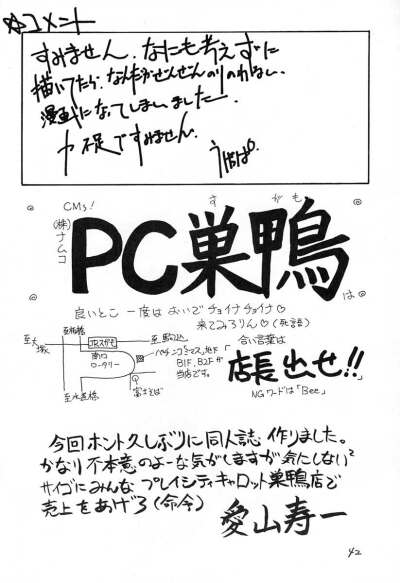 ☆コメント
すみません、なにも考えずに
描いてたら、なんだかぜんぜん
漫画になってしまいました
力不足ですみません。
CMs!
(株)ナムコ
すがも
PC巣鴨
は
良いとこ 一度は おいで チョイナチョイナ♡
来てみろりん♡(死語)
至大塚
至板橋
JRスガモ
至駒込
南口
ロータリー
パチンコ
B1F、B2Fが
当店です。
至水道橋
富士そば
合い言葉は
「店長出せ!!」
NGワードは「Bee」
今回ホント久しぶりに同人誌作りました。
かなり不本意のよーな気がしますが気にしない2
サイゴにみんな プレイシティキャロット巣鴨店で
売上をあげろ(命令)
愛山寿一
42